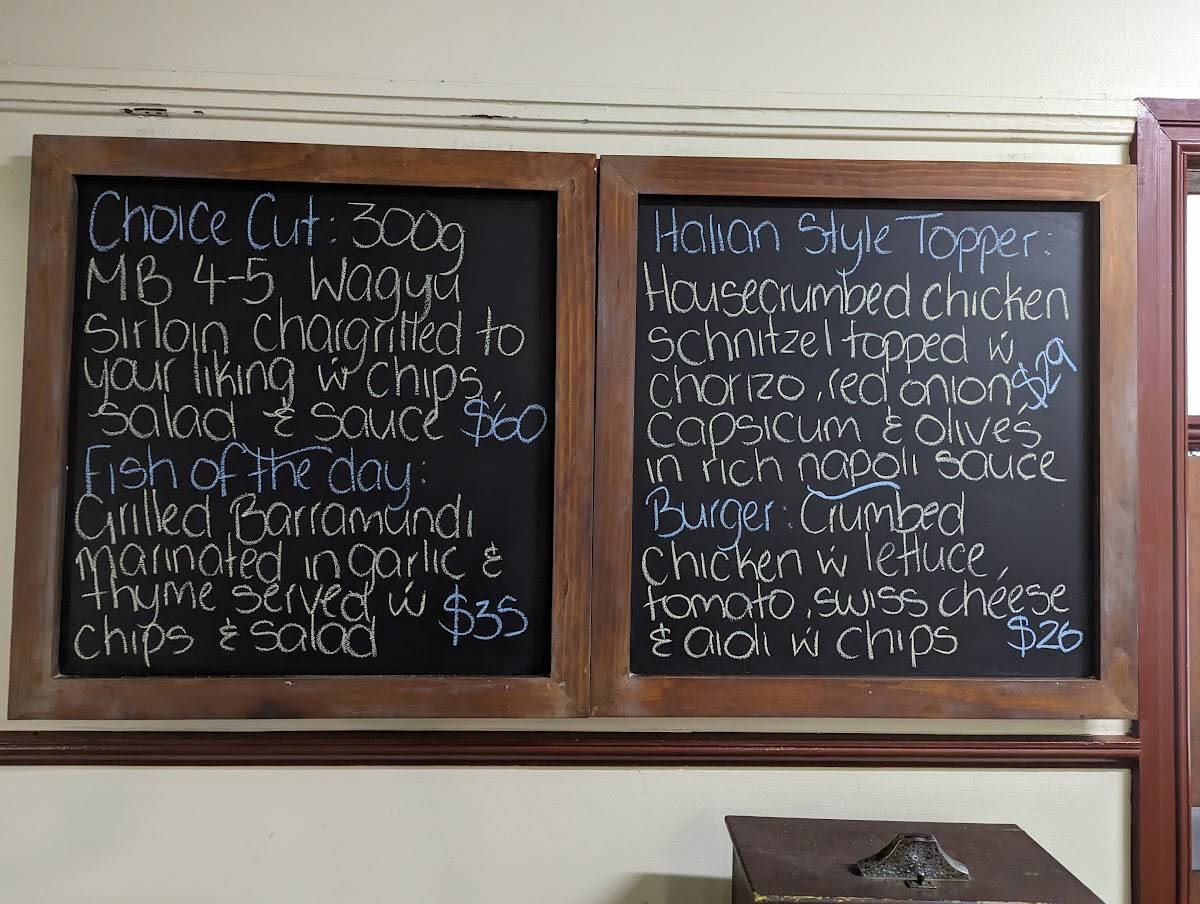 Choice Cut: 300g
MB 4-5 Wagyu
Sirloin chargrilled to
your liking w chips,
salad & sauce $60
Fish of the day:
Grilled Barramundi
marinated in garlic &
thyme served w
chips & salad $35
Italian Style Topper:
Housecrumbed chicken
schnitzel topped w
chorizo, red onion, $29
capsicum & olives
in rich napoli sauce
Burger: Crumbed
chicken w lettuce,
tomato, swiss cheese
& aioli w chips $26